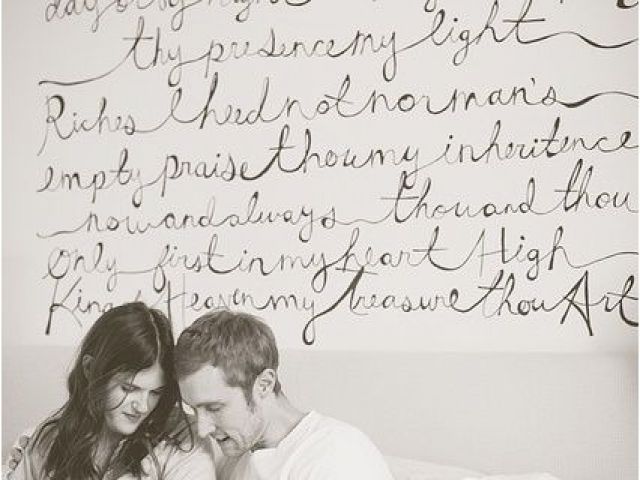 day or by night
thy presence my light
Riches I heed not nor man's
empty praise thou my inheritence
now and always thou and thou
Only first in my heart High
King of Heaven my treasure thou Art